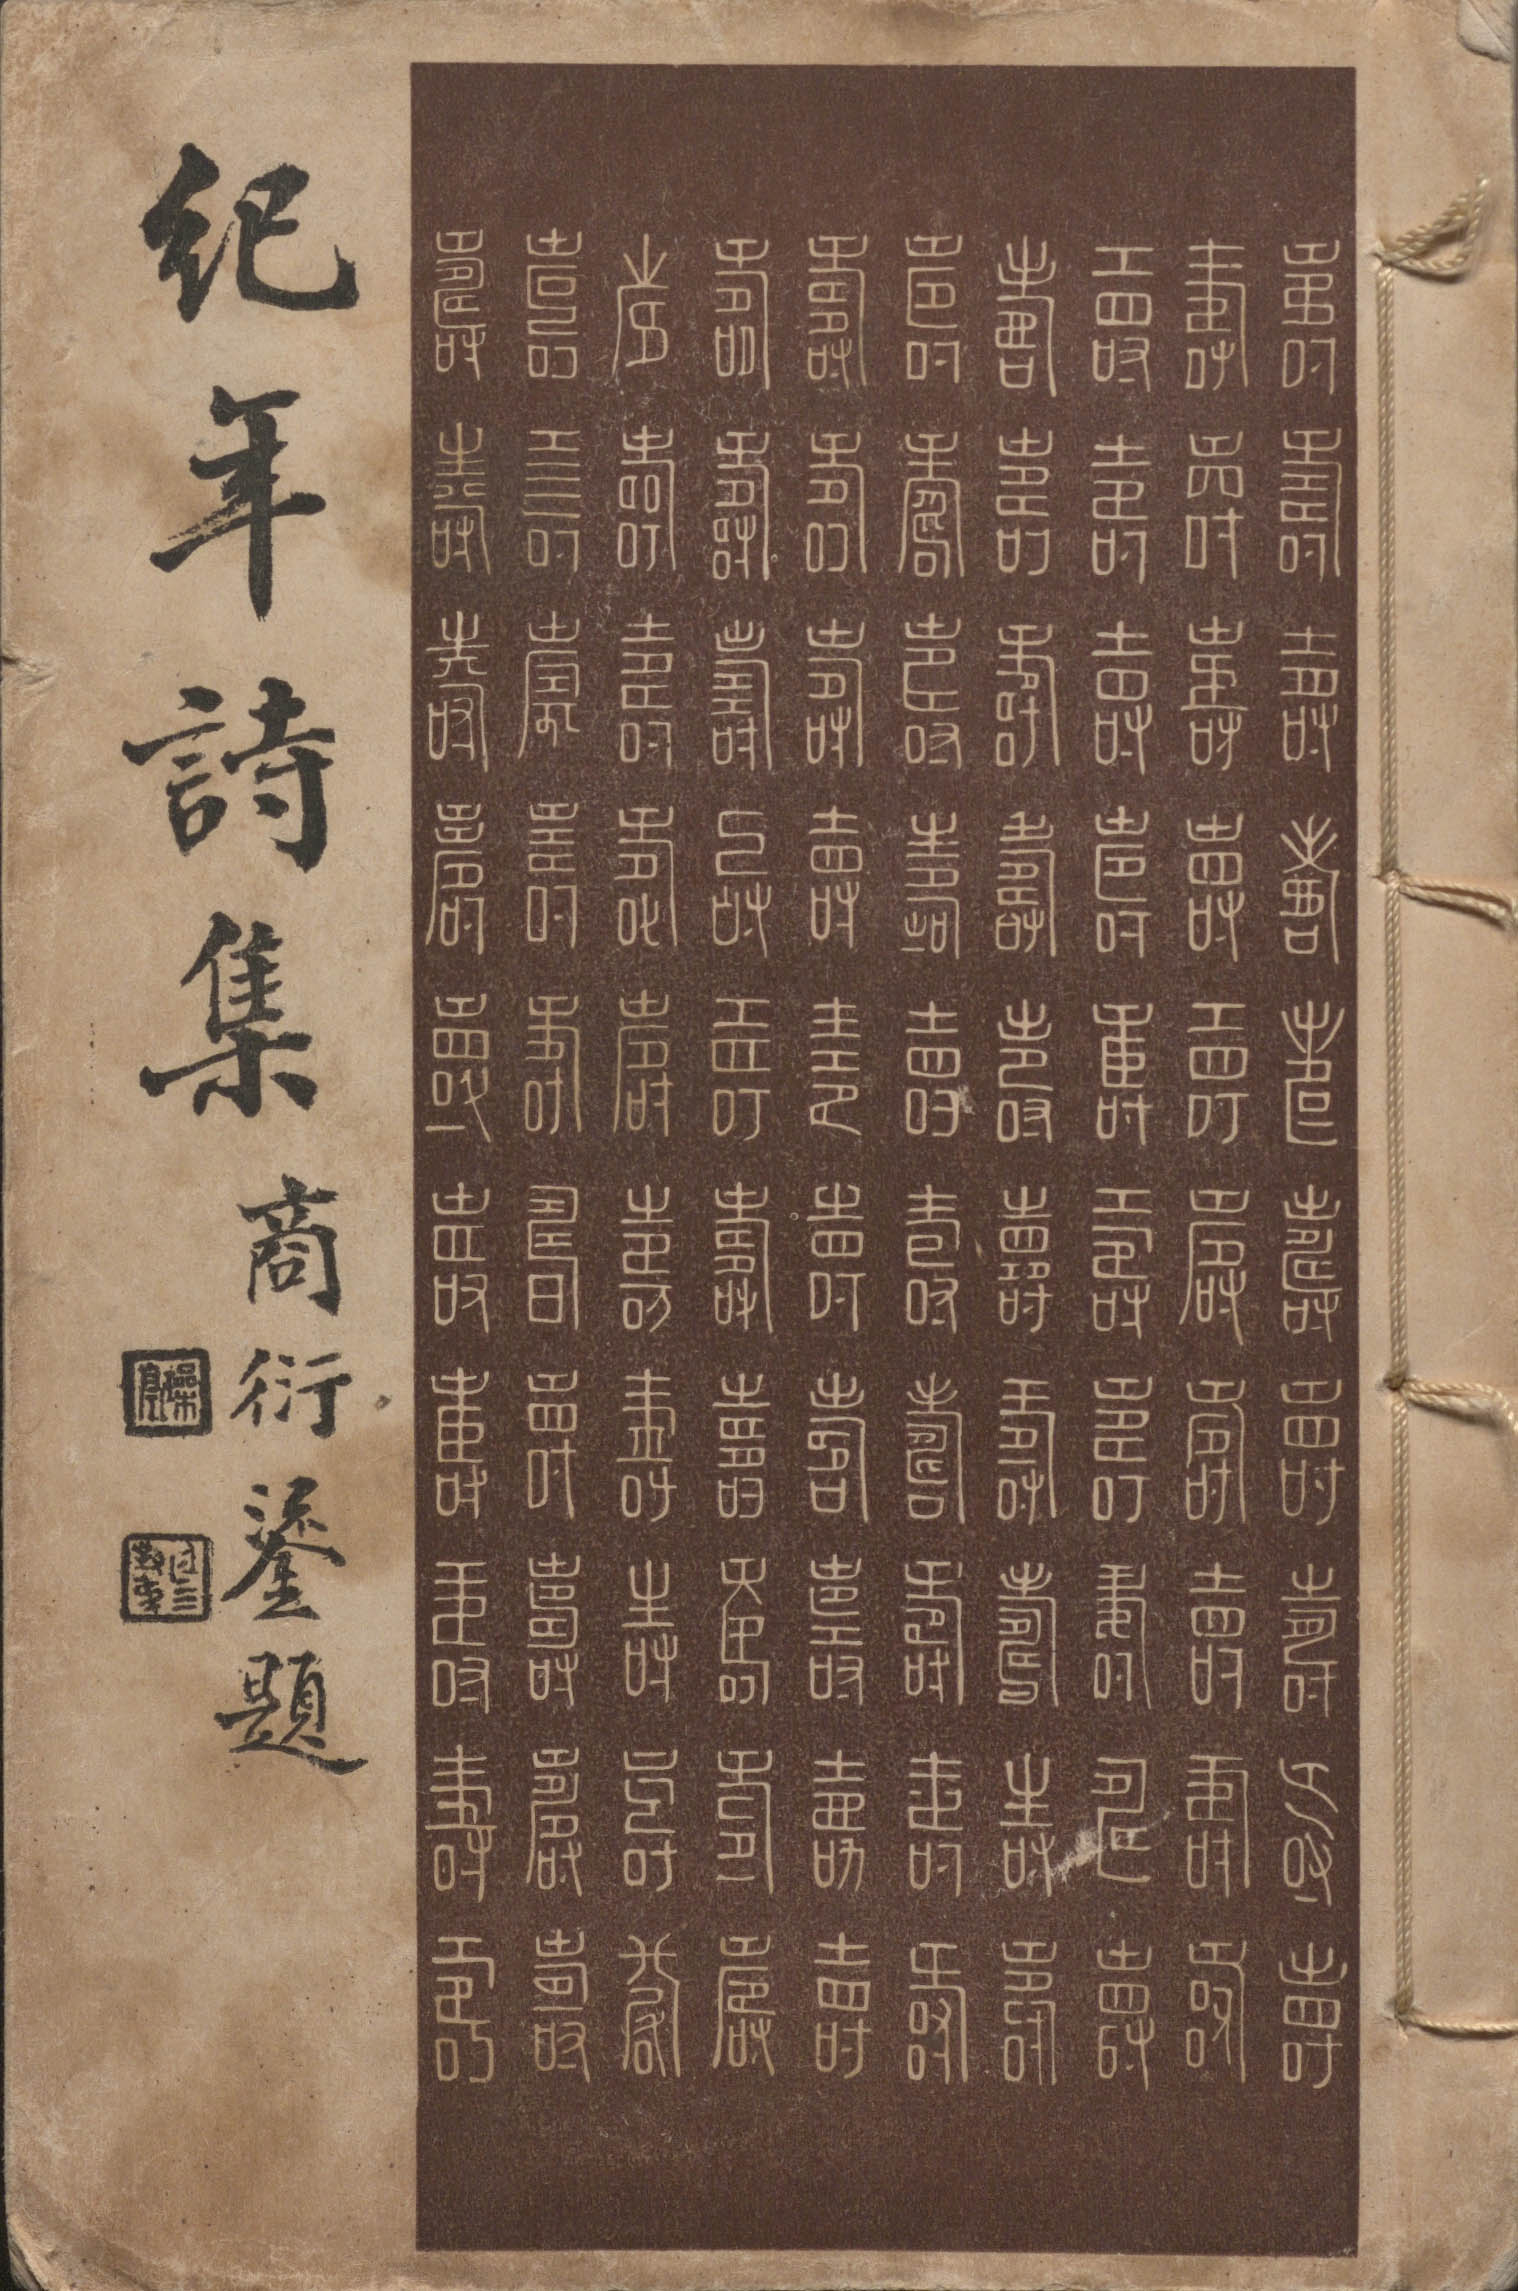 紀年詩集
商衍鎏題
藻亭
壽壽壽壽壽壽壽壽壽壽
壽壽壽壽壽壽壽壽壽壽
壽壽壽壽壽壽壽壽壽壽
壽壽壽壽壽壽壽壽壽壽
壽壽壽壽壽壽壽壽壽壽
壽壽壽壽壽壽壽壽壽壽
壽壽壽壽壽壽壽壽壽壽
壽壽壽壽壽壽壽壽壽壽
壽壽壽壽壽壽壽壽壽壽
壽壽壽壽壽壽壽壽壽壽